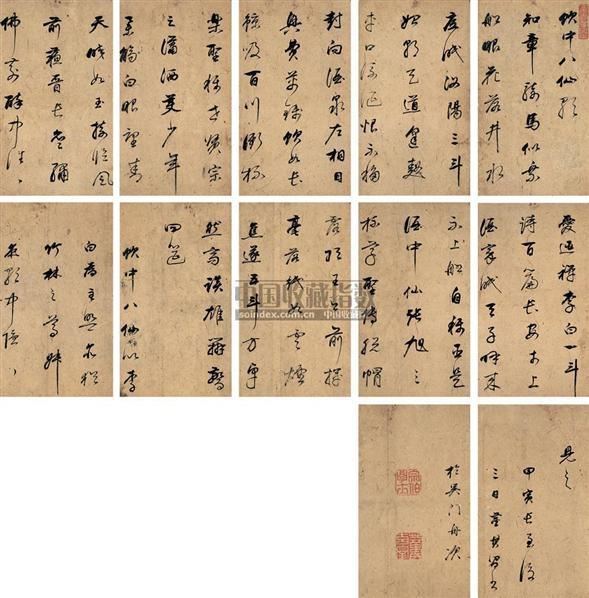 飲中八仙歌
知章騎馬似乘
船眼花落井水
底眠汝陽三斗
始朝天道逢麴
車口流涎恨不移
封向酒泉左相日
興費萬錢飲如長
鯨吸百川銜杯
樂聖稱世賢宗
之瀟洒美少年
舉觴白眼望青
天皎如玉樹臨風
前蘇晉長齋繡
佛前醉中往往
愛逃禪李白一斗
詩百篇長安市上
酒家眠天子呼來
不上船自稱臣是
酒中仙張旭三
杯草聖傳脫帽
露頂王公前揮
毫落紙如雲煙
焦遂五斗方卓
然高談雄辯驚
四筵
飲中八仙以李
白為主然亦猶
竹林之
歌中隱隱
見之
甲寅長至後
三日董其昌書
於吳門舟次
中国收藏指数
soindex.com.cn